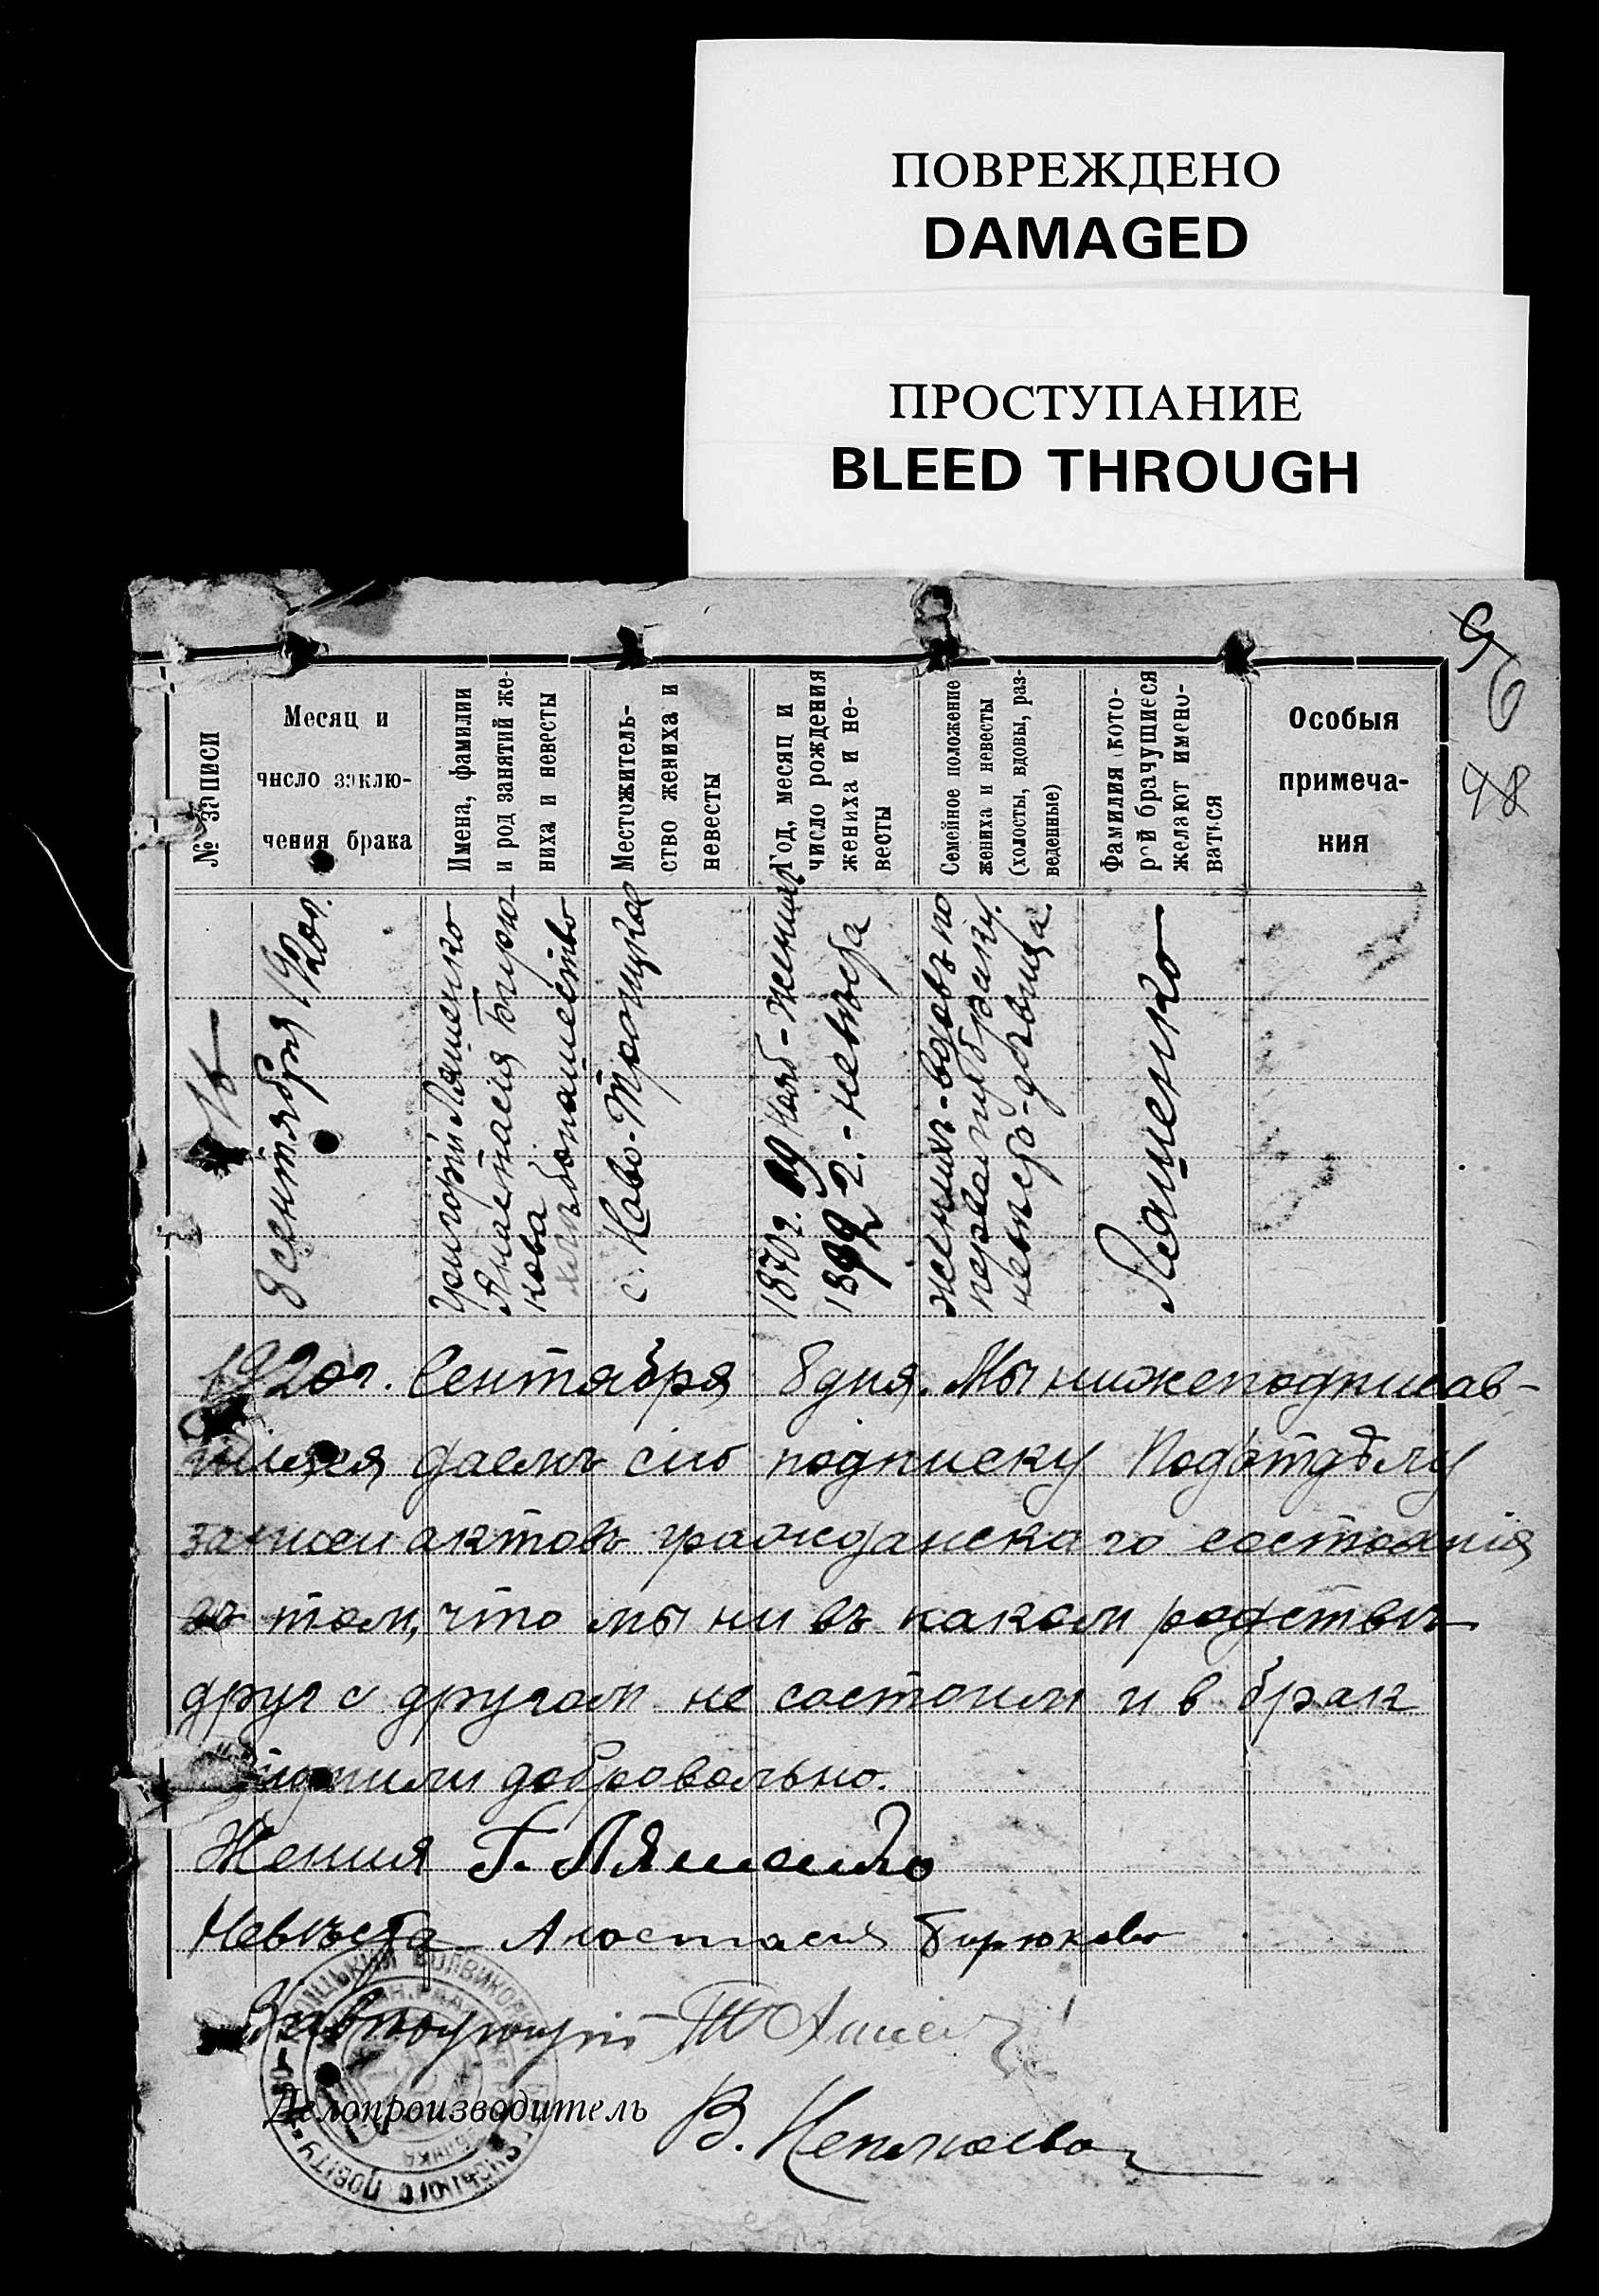 ПОВРЕЖДЕНО
DAMAGED
ПРОСТУПАНИЕ
BLEED THROUGH
96
48
№ записи
Месяц и
число заклю-
чения брака
Имена, фамилии
и род занятий же-
ниха и невесты
Местожитель-
ство жениха и
невесты
Год, месяц и
число рождения
жениха и не-
весты
Семейное положение
жениха и невесты
(холосты, вдовы, раз-
веденные)
Фамилия кото-
рой брачущиеся
желают имено-
ваться
Особыя
примеча-
ния
8 сентября 1920г.
Григорій Ляшенко
Анастасия Бирю-
кова
хлѣбопашество
с. Ново-Троицкое
1870г. 19 - жених
1892 г. - невѣста
жених - вдовъ по
первому браку.
невѣста - дѣвица.
Ляшенко
1920г. Сентября 8 дня. Мы нижеподписав-
шіяся даемъ сію подписку Подотдѣлу
записи актовъ гражданскаго состоянія
въ том, что мы ни въ каком родствѣ
друг с другом не состоим и в брак
вступили добровольно.
Жених Г. Ляшенко
Невѣста Анастасия Бирюкова
Завѣдующій
Делопроизводитель В.